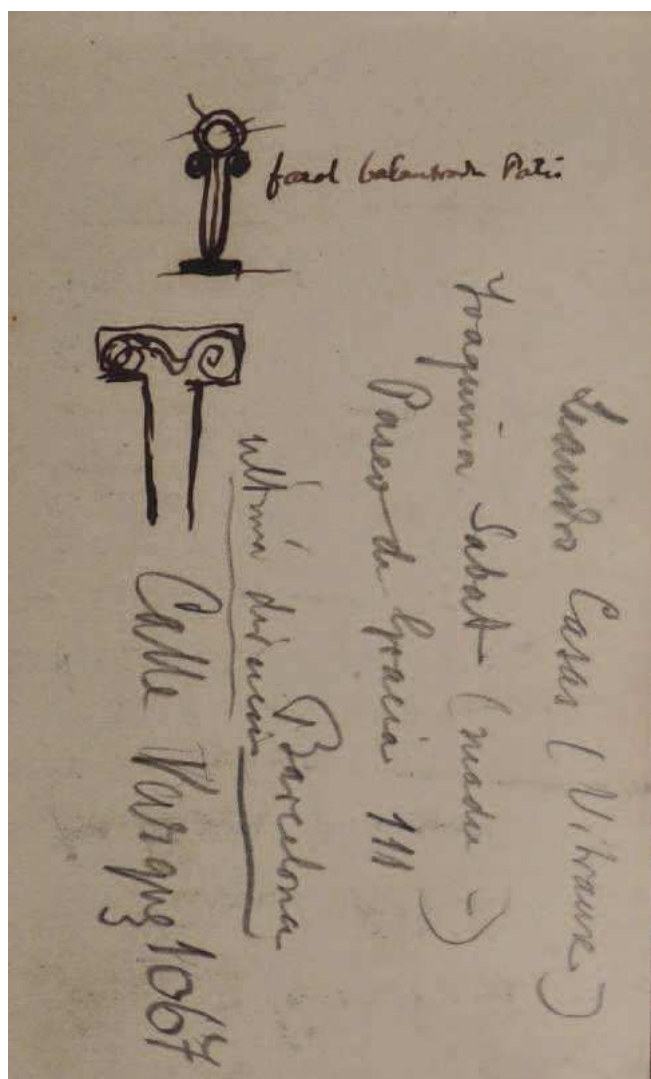 farol balaustrada Patio
Leandro Casas (Vitraux)
Joaquina Sabat (madre -)
Paseo de Gracia 111
Barcelona
última dirección
Calle 1067